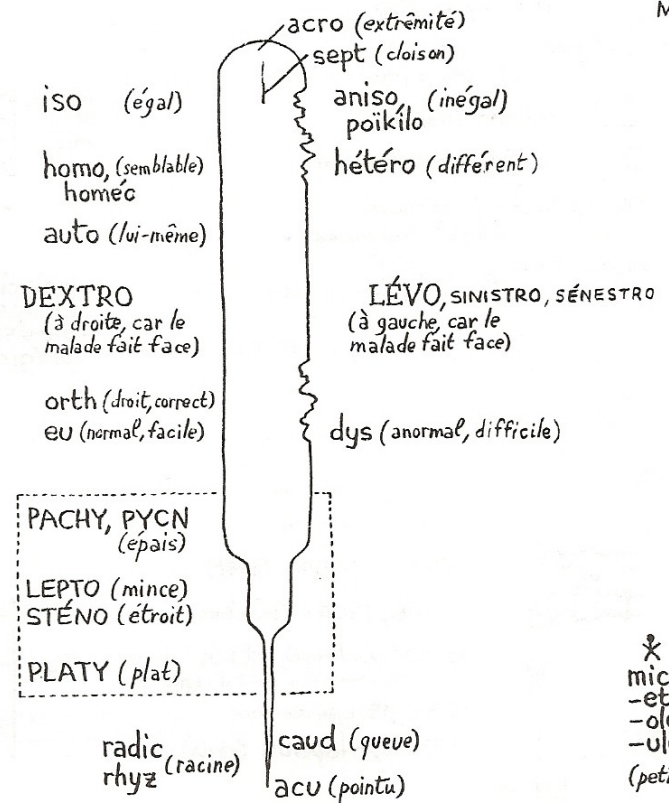 M
acro (extrêmité)
sept (cloison)
iso (égal)
aniso, (inégal)
poïkilo
homo, (semblable)
homéo
hétéro (différent)
auto (lui-même)
DEXTRO
(à droite, car le
malade fait face)
LÉVO, SINISTRO, SÉNESTRO
(à gauche, car le
malade fait face)
orth (droit, correct)
eu (normal, facile)
dys (anormal, difficile)
PACHY, PYCN
(épais)
LEPTO (mince)
STÉNO (étroit)
PLATY (plat)
radic
rhyz (racine)
caud (queue)
acu (pointu)
mic
-et
-ol
-ul
(peti